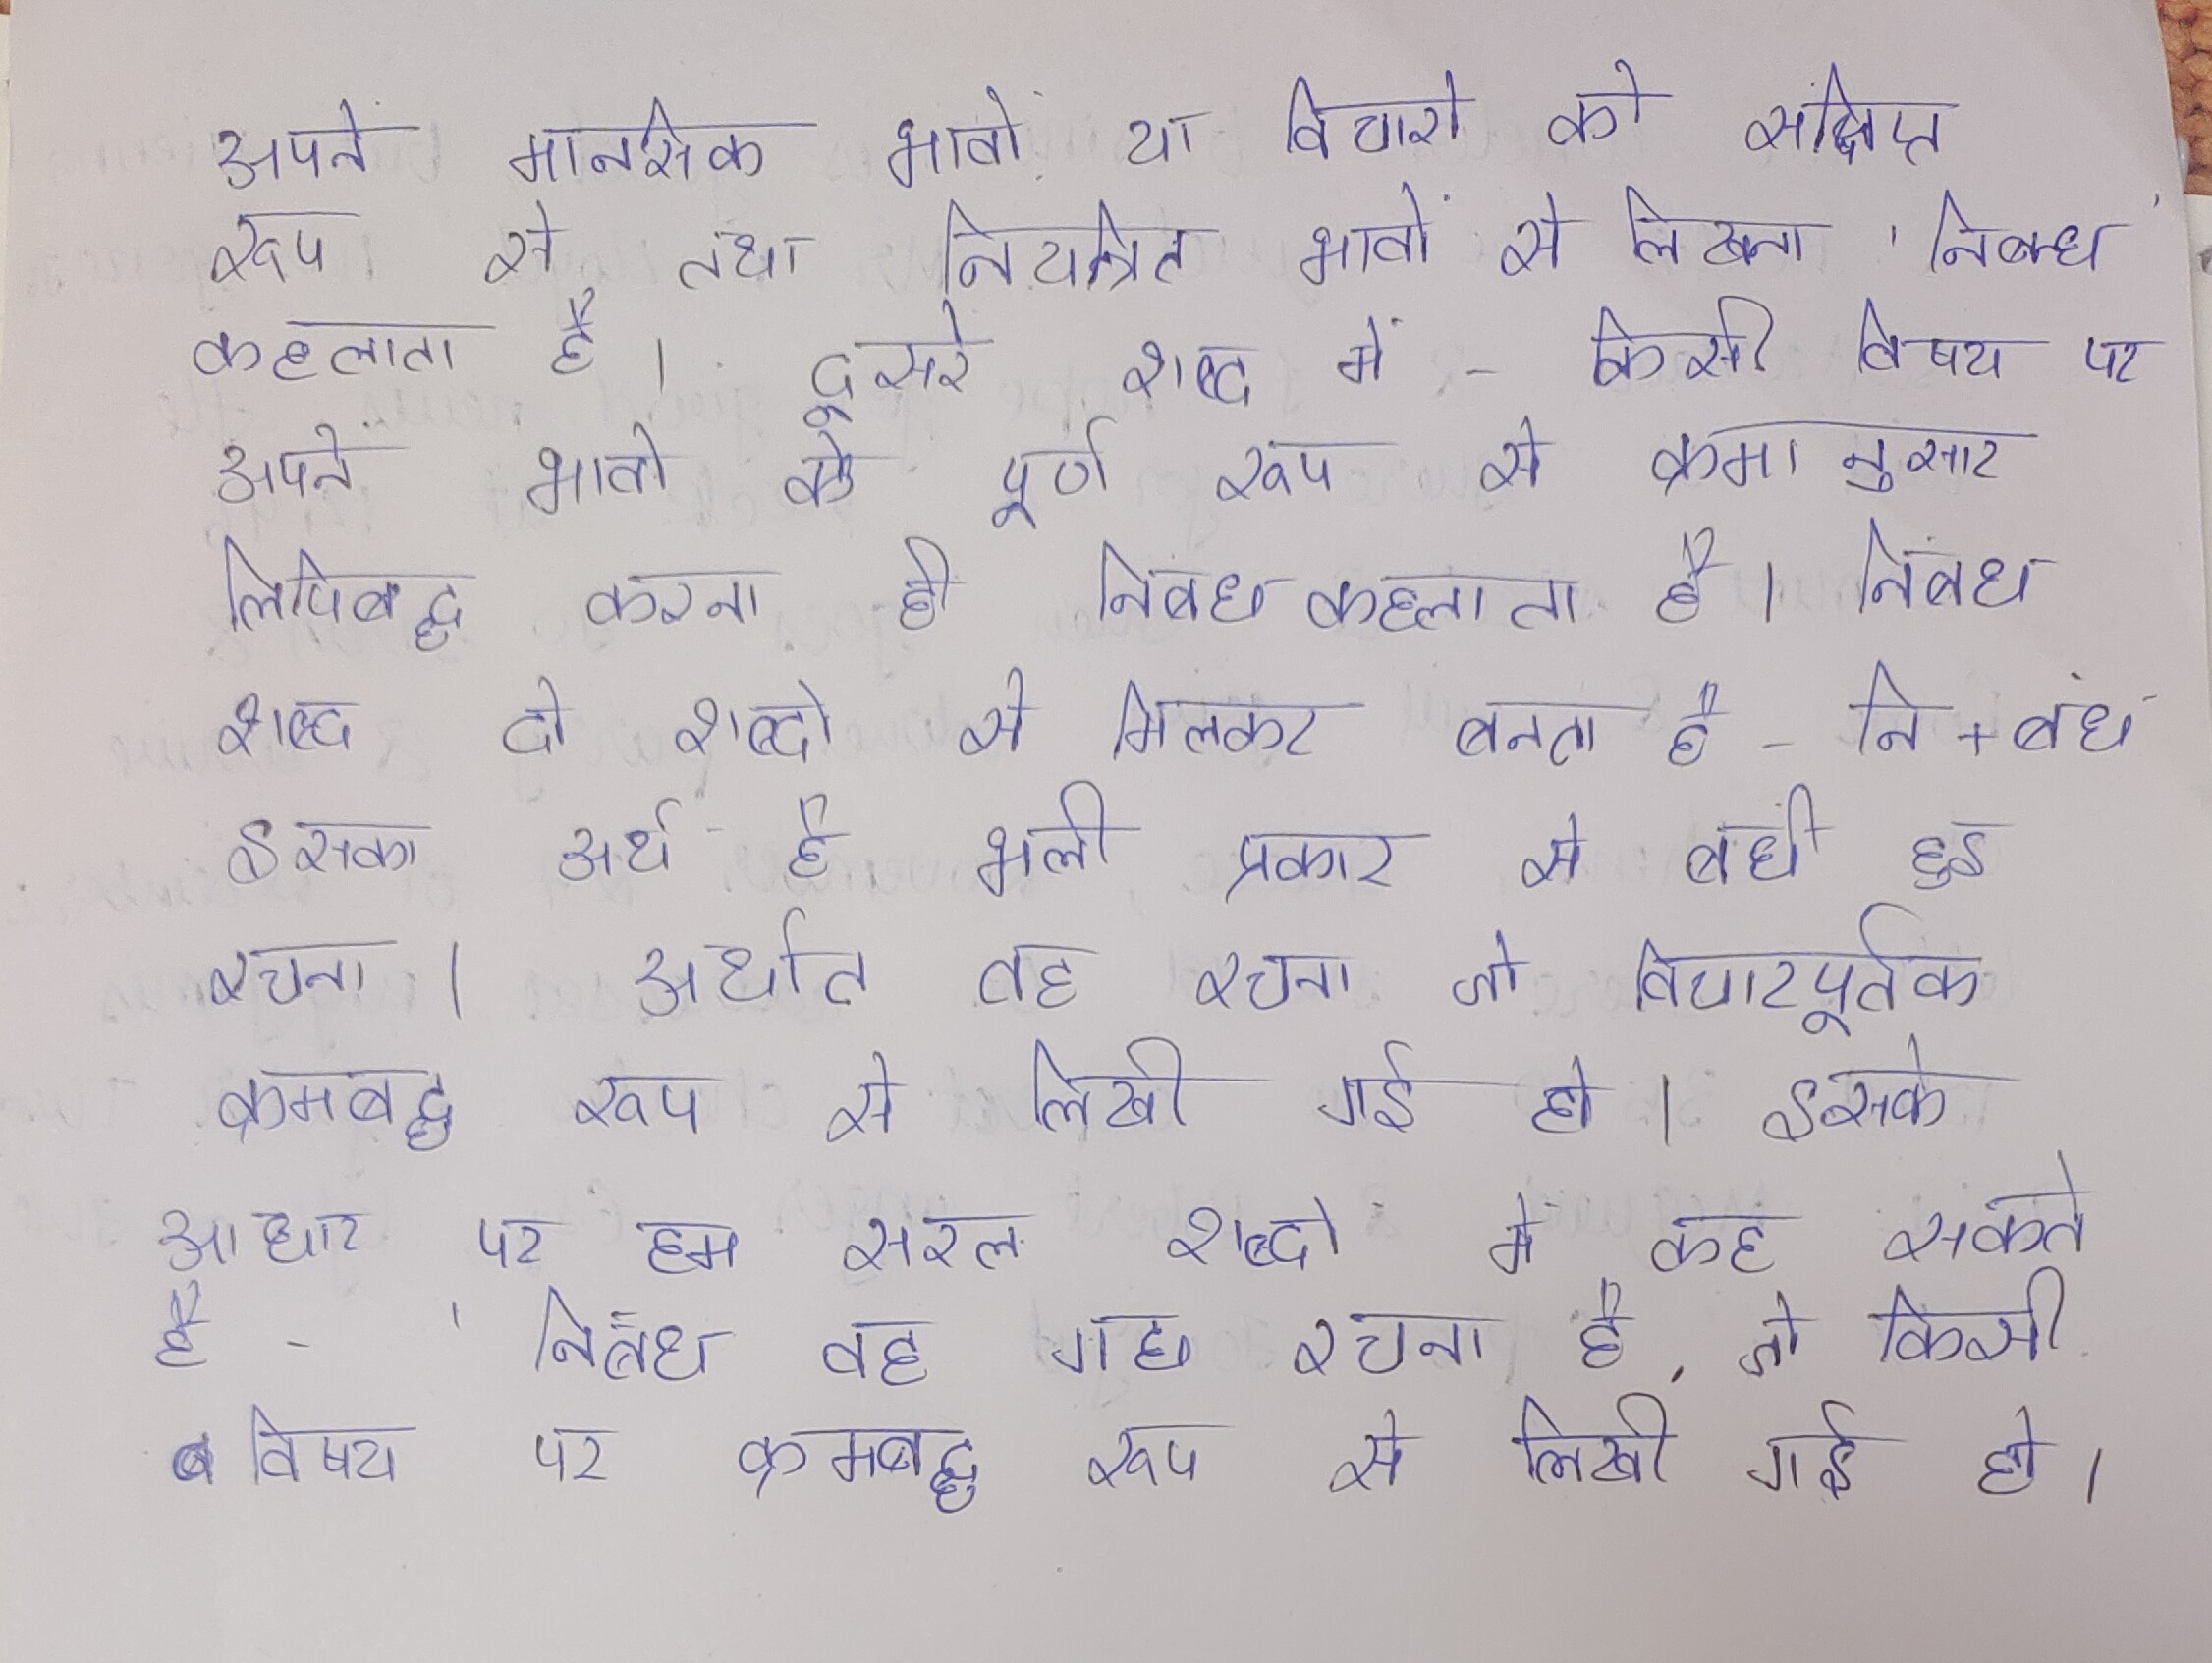 अपने मानसिक भावों या विचारो को संक्षिप्त
रूप से तथा नियन्त्रित भावों से लिखना 'निबन्ध'
कहलाता है। दूसरे शब्द में - किसी विषय पर
अपने भावो को पूर्ण रूप से क्रमानुसार
लिपिबद्ध करना ही निबंध कहलाता है। निबंध
शब्द दो शब्दो से मिलकर बनता है - नि + बंध
इसका अर्थ है भली प्रकार से बंधी हुइ
रचना। अर्थात वह रचना जो विचारपूर्वक
क्रमबद्ध रूप से लिखी गई हो। इसके
आधार पर हम सरल शब्दो में कह सकते
है - 'निबंध वह गद्य रचना है, जो किसी
विषय पर क्रमबद्ध रूप से लिखी गई हो।